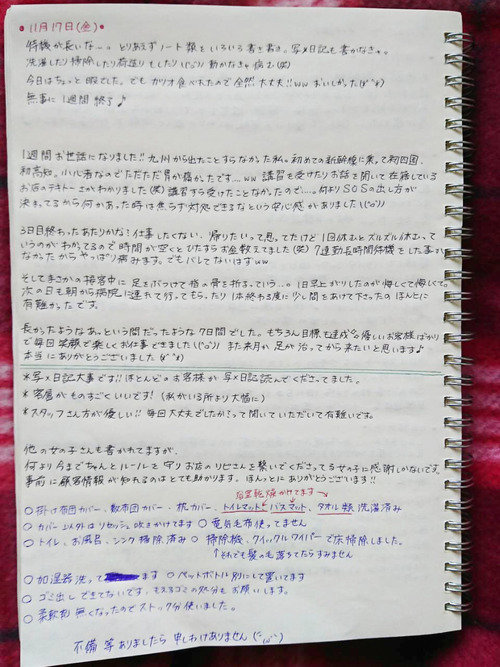 11月17日(金)
待機が長いな…。とりあえずノート類をいろいろ書き書き。写メ日記も書かなきゃ。
洗濯したり掃除したり荷造りもしたり(^o^)ノ 動かなきゃ病む(笑)
今日はちょっと暇でした。でもカツオ食べれたので全然大丈夫!!wwおいしかった(*^^*)
無事に1週間終了♪
1週間お世話になりました!!九州から出たことすらなかった私。初めての新幹線に乗って初四国、
初高知。小心者なのでただただ胃が痛かったです…ww 講習も受けたりお話を聞いて在籍している
お店のテキトーさがわかりました(笑)講習すら受けたことなかったので…。何よりSOSの出し方が
決まってるから何かあった時は焦らず対処できるなという安心感がありました(^o^)
3日目終わったあたりかな?仕事したくない、帰りたいって思ってたけど1回休むとズルズル休むって
いうのがわかってるので時間が空くとひたすらお金数えてました(笑)7連勤長時間待機をした事が
なかったからやっぱり病みます。でもバレてないはずww
そしてまさかの接客中に足をぶつけて指の骨を折るっていう…。1日早上がりしたのが悔しくて悔しくて。
次の日も朝から病院に連れて行ってもらったり1本終わる度に少し間をあけて下さったのほんとに
有難かったです。
長かったようなあっという間だったような7日間でした。もちろん目標も達成☆優しいお客様ばかり
で毎回笑顔で楽しくお仕事できました(^o^) また来月か足が治ってから来たいと思います♪
本当にありがとうございました(*^^*)
*写メ日記大事です!!ほとんどのお客様が写メ日記読んでくださってました。
*客層がものすごくいいです!(私がいる所より大幅に)
*スタッフさん方が優しい!!毎回大丈夫でしたか?って聞いていただいて有難いです。
他の女の子さんも書かれてますが、
何より今までちゃんとルールを守りお店のリピさんを繋いでくださってる女の子に感謝しかないです。
事前に顧客情報が知れるのはとても助かります。ほんっとにありがとうございます!!
浴室乾燥かけてます
○掛け布団カバー、敷布団カバー、枕カバー、トイレマット、バスマット、タオル類洗濯済み
○カバー以外はリセッシュ吹きかけてます ○電気毛布使ってません
○トイレ、お風呂、シンク掃除済み ○掃除機、クイックルワイパーで床掃除しました。
↑それでも髪の毛落ちてたらすみません
○加湿器洗って ます ○ペットボトル別にして置いてます
○ゴミ出しできてないです、もえるゴミの処分もお願いします。
○柔軟剤無くなったのでストック分使いました。
不備等ありましたら申しわけありません(´・ω・`)